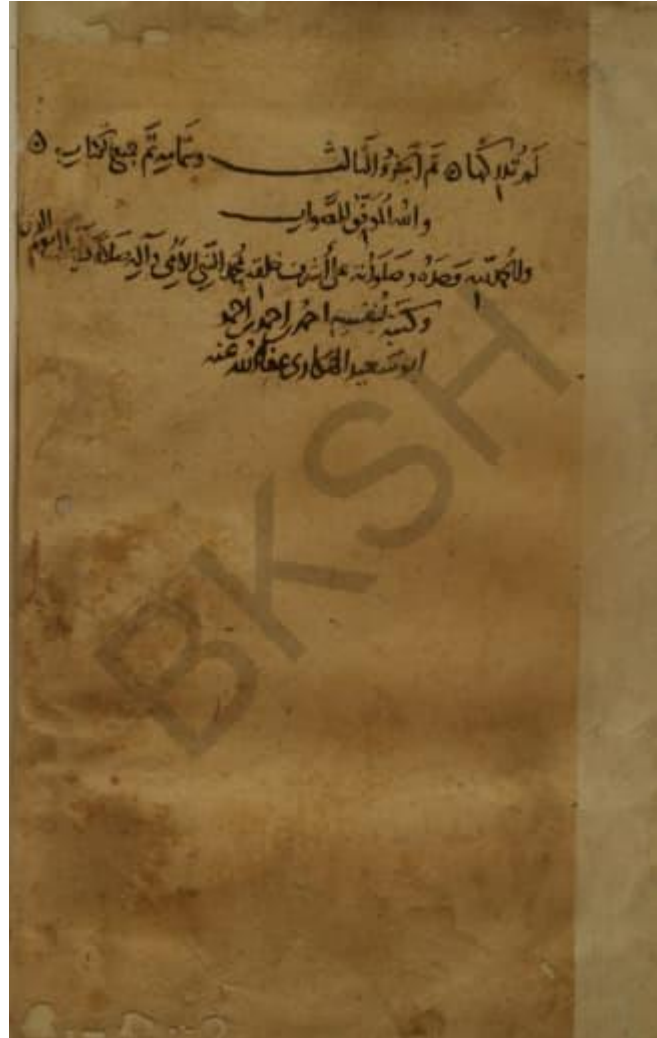 لم تلد كمان تم الجزء الثالث وبتمامه تم جميع الكتاب
والله الموفق للصواب
والحمد لله وحده وصلواته على أشرف خلقه محمد النبي الأمي وآله صلاة إلى يوم الدين
وكتبه لنفسه احمد بن احمد بن احمد
ابو سعيد عفا الله عنه
BKSH